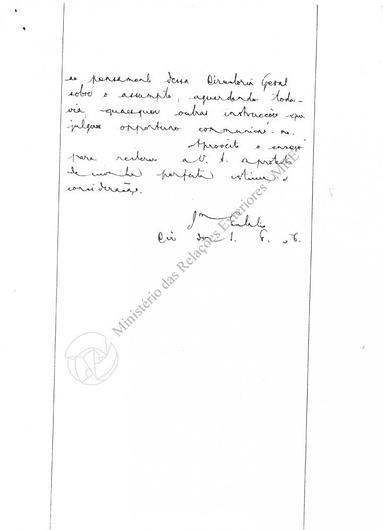 ao pensamento dessa Directoria Geral
sobre o assumpto, aguardando toda-
via quaesquer outras instrucções que
julgar opportuno communicar-me.
Aproveito o ensejo
para reiterar a V. S. os protestos
de minha perfeita estima e
consideração.
Ministério das Relações Exteriores - MRE